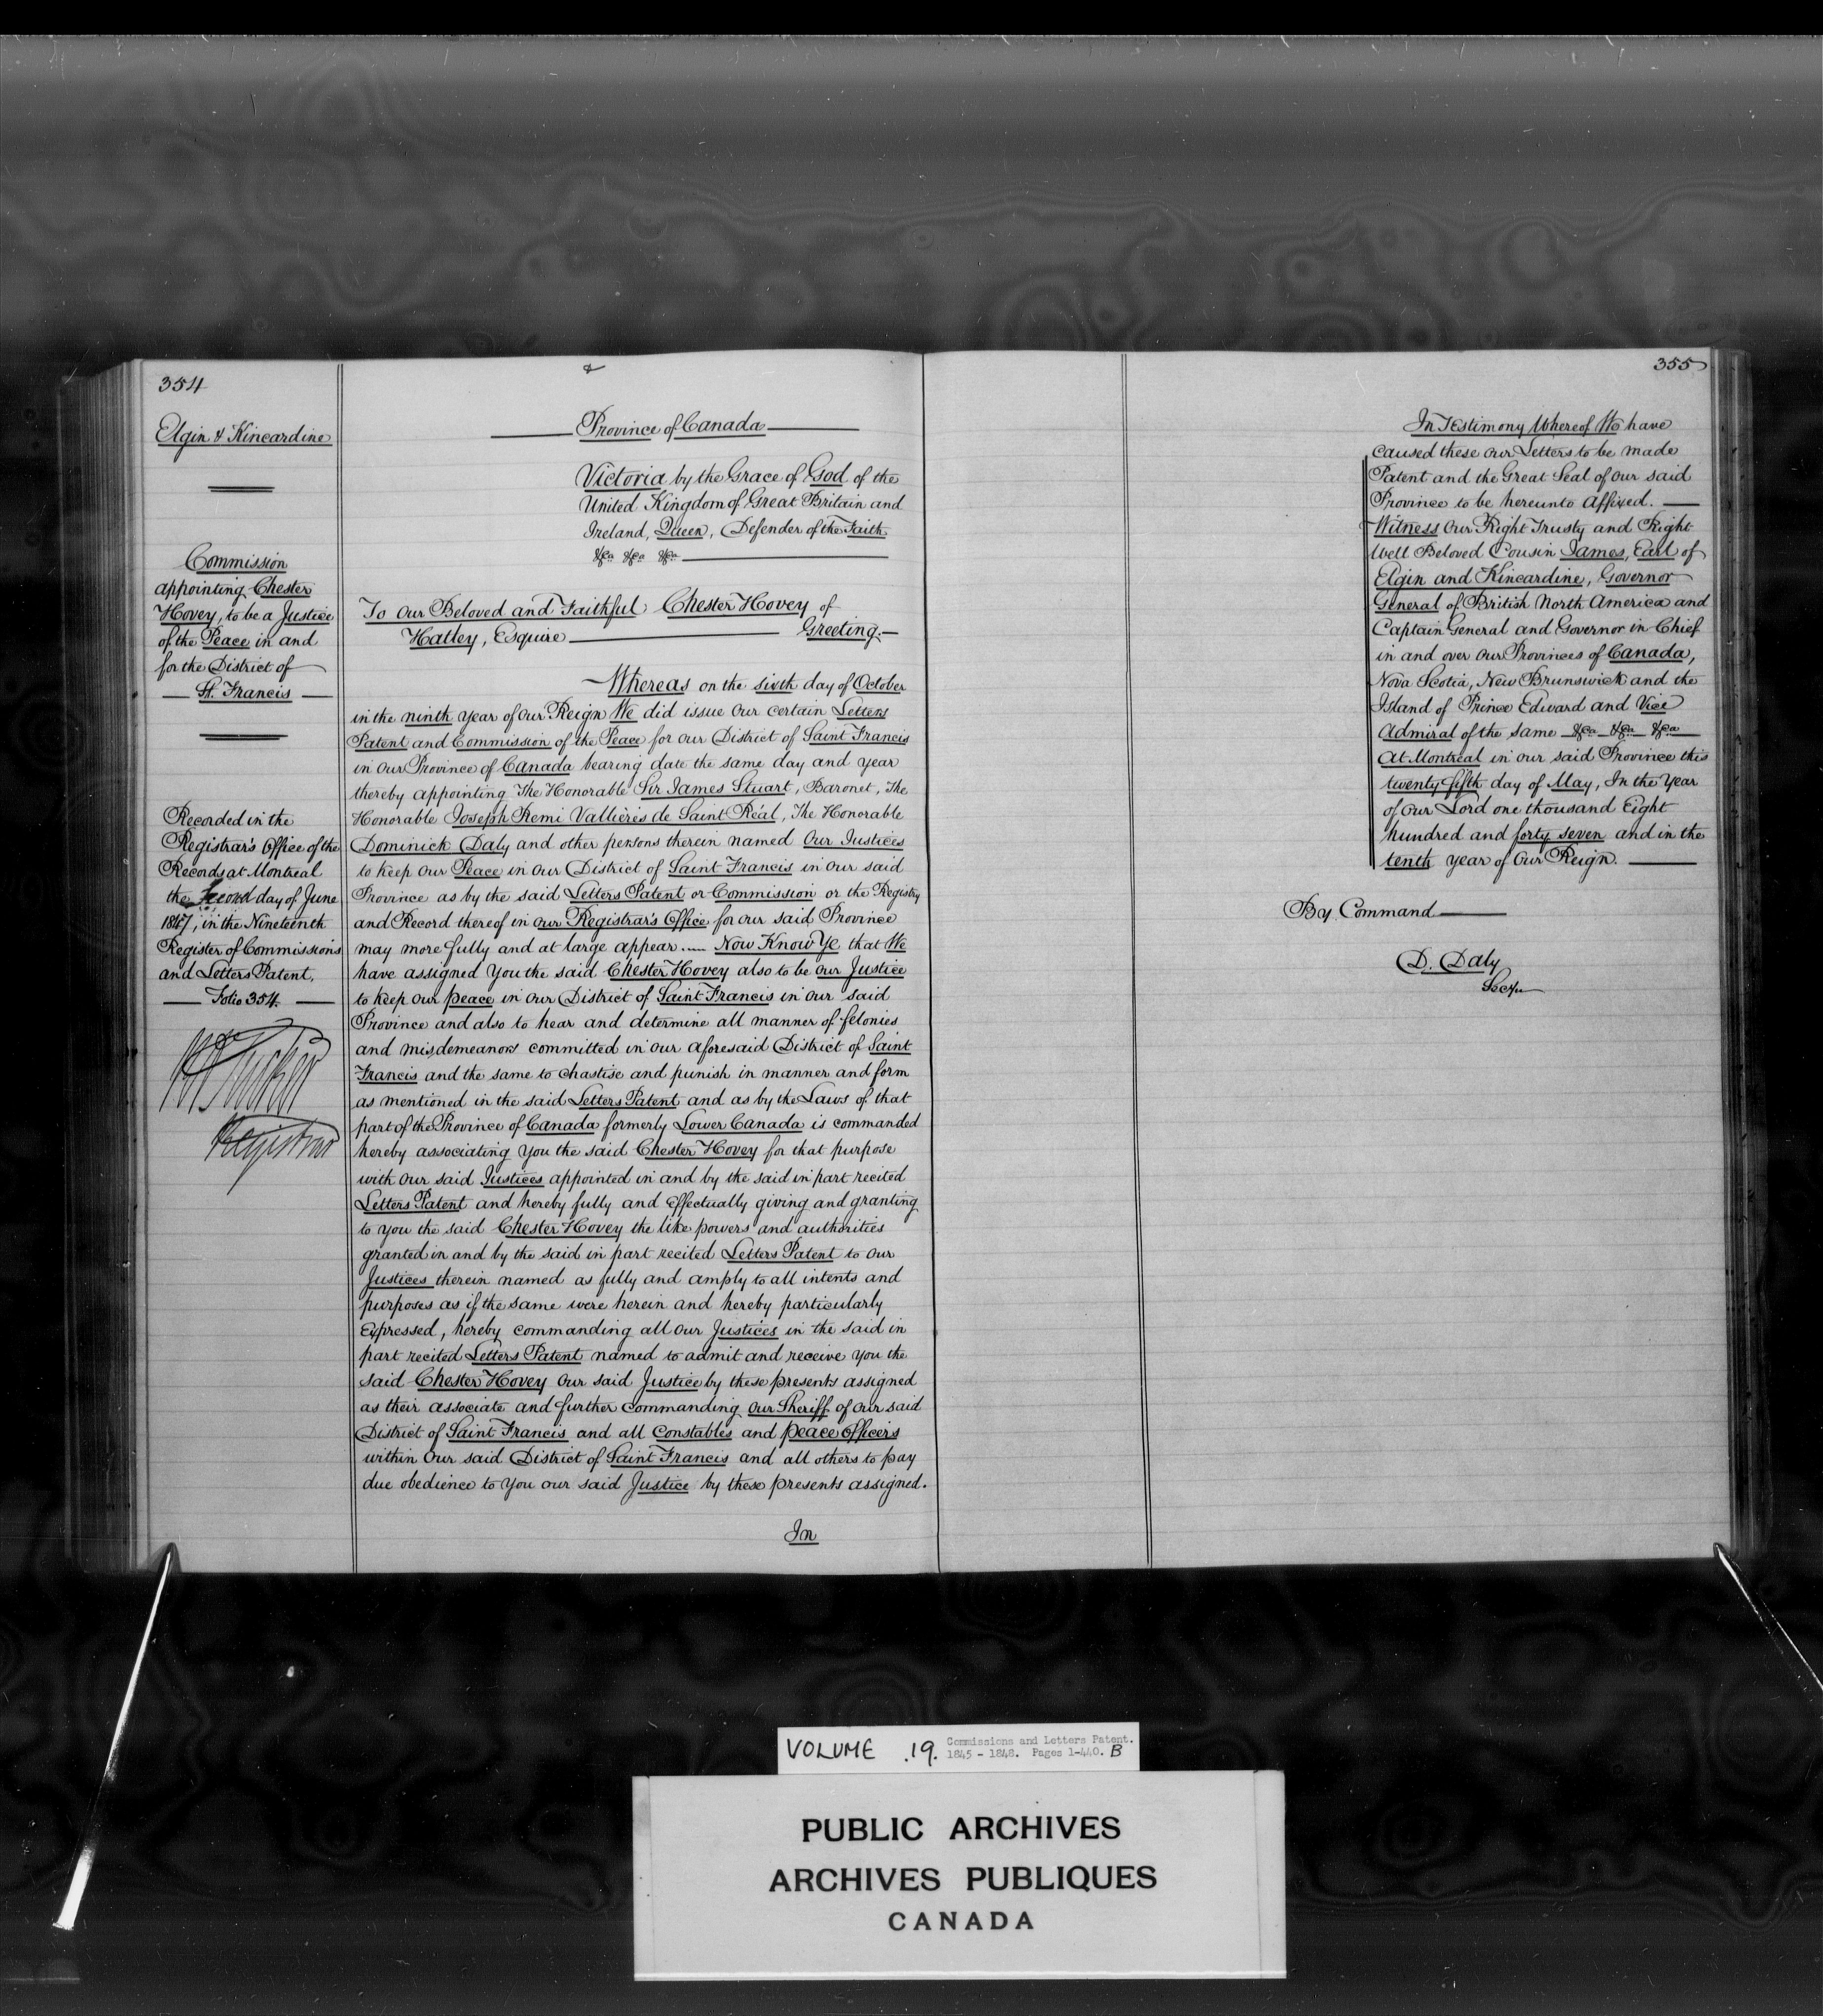 354
Elgin & Kincardine
Commission
appointing Chester
Hovey, to be a Justice
of the Peace in and
for the District of
St. Francis
Recorded in the
Registrar's Office of the
Records at Montreal
the Second day of June
1847, in the Nineteenth
Register of Commissions
and Letters Patent,
Folio 354.
Registrar
Province of Canada
Victoria by the Grace of God of the
United Kingdom of Great Britain and
Ireland, Queen, Defender of the Faith
&ca &ca &ca
To Our Beloved and Faithful Chester Hovey of
Hatley, Esquire Greeting.
Whereas on the sixth day of October
in the ninth year of Our Reign We did issue Our certain Letters
Patent and Commission of the Peace for Our District of Saint Francis
in Our Province of Canada bearing date the same day and year
thereby appointing The Honorable Sir James Stuart, Baronet, The
Honorable Joseph Remi Vallières de Saint Réal, The Honorable
Dominick Daly and other persons therein named Our Justices
to keep Our Peace in Our District of Saint Francis in Our said
Province as by the said Letters Patent or Commission or the Registry
and Record thereof in Our Registrar's Office for our said Province
may more fully and at large appear. Now Know Ye that We
have assigned You the said Chester Hovey also to be Our Justice
to keep Our peace in Our District of Saint Francis in Our said
Province and also to hear and determine all manner of felonies
and misdemeanors committed in Our aforesaid District of Saint
Francis and the same to chastise and punish in manner and form
as mentioned in the said Letters Patent and as by the Laws of that
part of the Province of Canada formerly Lower Canada is commanded
hereby associating You the said Chester Hovey for that purpose
with Our said Justices appointed in and by the said in part recited
Letters Patent and hereby fully and Effectually giving and granting
to you the said Chester Hovey the like powers and authorities
granted in and by the said in part recited Letters Patent to Our
Justices therein named as fully and amply to all intents and
purposes as if the same were herein and hereby particularly
Expressed, hereby commanding all Our Justices in the said in
part recited Letters Patent named to admit and receive You the
said Chester Hovey Our said Justice by these presents assigned
as their associate and further commanding Our Sheriff of Our said
District of Saint Francis and all Constables and peace Officers
within Our said District of Saint Francis and all others to pay
due obedience to You our said Justice by these presents assigned.
In
355
In Testimony Whereof We have
caused these Our Letters to be made
Patent and the Great Seal of Our said
Province to be hereunto Affixed.
Witness Our Right Trusty and Right
Well Beloved Cousin James, Earl of
Elgin and Kincardine, Governor
General of British North America and
Captain General and Governor in Chief
in and over Our Provinces of Canada,
Nova Scotia, New Brunswick and the
Island of Prince Edward and Vice
Admiral of the Same &ca &ca &ca
At Montreal in our said Province this
twenty fifth day of May, In the Year
of Our Lord one thousand Eight
hundred and forty seven and in the
tenth year of Our Reign.
By Command
D. Daly
Secy
VOLUME .19. Commissions and Letters Patent.
1845 - 1848. Pages 1-440. B
PUBLIC ARCHIVES
ARCHIVES PUBLIQUES
CANADA